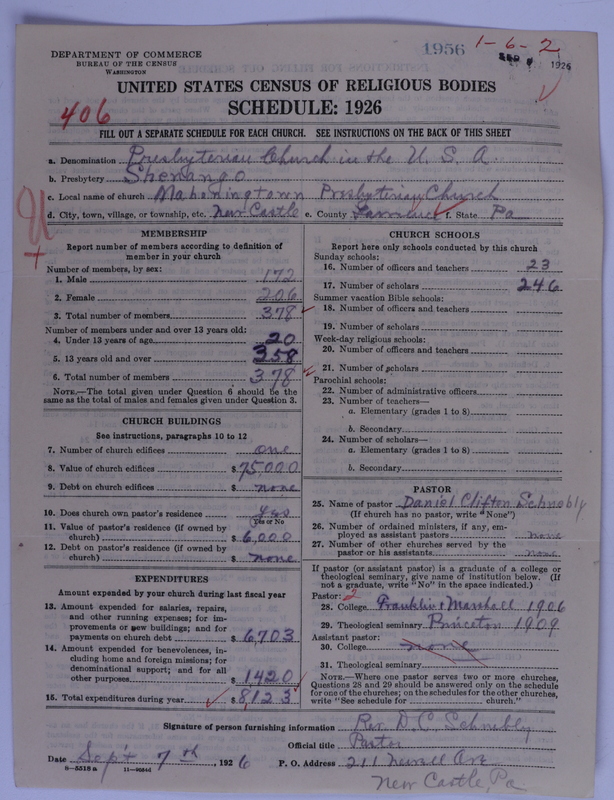 1956 1-6-2
SEP 1926
DEPARTMENT OF COMMERCE
BUREAU OF THE CENSUS
WASHINGTON
UNITED STATES CENSUS OF RELIGIOUS BODIES
406
SCHEDULE: 1926
FILL OUT A SEPARATE SCHEDULE FOR EACH CHURCH. SEE INSTRUCTIONS ON THE BACK OF THIS SHEET
a. Denomination Presbyterian Church in the U. S. A
b. Presbytery Shenango
c. Local name of church Mahoningtown Presbyterian Church
d. City, town, village, or township, etc. New Castle e. County Lawrence f. State Pa
MEMBERSHIP
Report number of members according to definition of
member in your church
Number of members, by sex:
1. Male 172
2. Female 206
3. Total number of members 378
Number of members under and over 13 years old:
4. Under 13 years of age 20
5. 13 years old and over 358
6. Total number of members 378
NOTE.—The total given under Question 6 should be the
same as the total of males and females given under Question 3.
CHURCH BUILDINGS
See instructions, paragraphs 10 to 12
7. Number of church edifices one
8. Value of church edifices $75,000
9. Debt on church edifices $ none
10. Does church own pastor's residence yes
Yes or No
11. Value of pastor's residence (if owned by
church) $6,000
12. Debt on pastor's residence (if owned by
church) $ none
EXPENDITURES
Amount expended by your church during last fiscal year
13. Amount expended for salaries, repairs,
and other running expenses; for im-
provements or new buildings; and for
payments on church debt $6,703
14. Amount expended for benevolences, in-
cluding home and foreign missions; for
denominational support; and for all
other purposes $1420
15. Total expenditures during year $8,123
CHURCH SCHOOLS
Report here only schools conducted by this church
Sunday schools:
16. Number of officers and teachers 23
17. Number of scholars 246
Summer vacation Bible schools:
18. Number of officers and teachers
19. Number of scholars
Week-day religious schools:
20. Number of officers and teachers
21. Number of scholars
Parochial schools:
22. Number of administrative officers
23. Number of teachers—
a. Elementary (grades 1 to 8)
b. Secondary
24. Number of scholars—
a. Elementary (grades 1 to 8)
b. Secondary
PASTOR
25. Name of pastor Daniel Clifton Schnebly
(If church has no pastor, write "None")
26. Number of ordained ministers, if any, em-
ployed as assistant pastors none
27. Number of other churches served by the
pastor or his assistants none
If pastor (or assistant pastor) is a graduate of a college or
theological seminary, give name of institution below. (If
not a graduate, write "No" in the space indicated.)
Pastor: 2
28. College Franklin & Marshall 1906
29. Theological seminary Princeton 1909
Assistant pastor:
30. College none
31. Theological seminary
NOTE.—Where one pastor serves two or more churches,
Questions 28 and 29 should be answered only on the schedule
for one of the churches; on the schedules for the other churches,
write "See schedule for church."
Signature of person furnishing information Rev. D. C. Schnebly
Official title Pastor
Date Sept 7th, 1926 P. O. Address 211 Newell Ave
8-5518a 11-9054d
New Castle, Pa